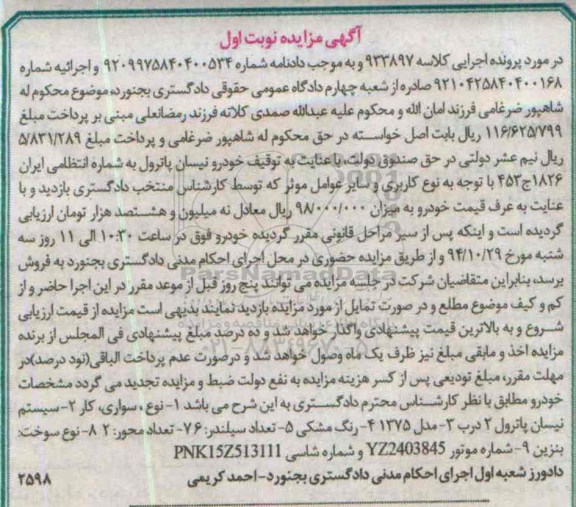 آگهی مزایده نوبت اول
در مورد پرونده اجرایی کلاسه ۹۳۳۸۹۷ و به موجب دادنامه شماره ۹۲۰۹۹۷۵۸۴۰۴۰۰۵۳۴ و اجرائیه شماره
۹۲۱۰۴۲۵۸۴۰۴۰۰۱۶۸ صادره از شعبه چهارم دادگاه عمومی حقوقی دادگستری بجنورد، موضوع محکوم له
شاهپور ضرغامی فرزند امان الله و محکوم علیه عبدالله صمدی کلاته فرزند رمضانعلی مبنی بر پرداخت مبلغ
۱۱۶/۶۲۵/۷۹۹ ریال بابت اصل خواسته در حق محکوم له شاهپور ضرغامی و پرداخت مبلغ ۵/۸۳۱/۲۸۹
ریال نیم عشر دولتی در حق صندوق دولت، با عنایت به توقیف خودرو نیسان پاترول به شماره انتظامی ایران
۱۸۲۶ج۴۵۳ با توجه به نوع کاربری و سایر عوامل موثر که توسط کارشناس منتخب دادگستری بازدید و با
عنایت به عرف قیمت خودرو به میزان ۹۸/۰۰۰/۰۰۰ ریال معادل نه میلیون و هشتصد هزار تومان ارزیابی
گردیده است و اینکه پس از سیر مراحل قانونی مقرر گردیده خودرو فوق در ساعت ۱۰:۳۰ الی ۱۱ روز سه
شنبه مورخ ۹۴/۱۰/۲۹ و از طریق مزایده حضوری در محل اجرای احکام مدنی دادگستری بجنورد به فروش
برسد، بنابراین متقاضیان شرکت در جلسه مزایده می توانند پنج روز قبل از موعد مقرر در این اجرا حاضر و از
کم و کیف موضوع مطلع و در صورت تمایل از مورد مزایده بازدید نمایند بدیهی است مزایده از قیمت ارزیابی
شروع و به بالاترین قیمت پیشنهادی واگذار خواهد شد و ده درصد مبلغ پیشنهادی فی المجلس از برنده
مزایده اخذ و مابقی مبلغ نیز ظرف یک ماه وصول خواهد شد و درصورت عدم پرداخت الباقی(نود درصد)در
مهلت مقرر، مبلغ تودیعی پس از کسر هزینه مزایده به نفع دولت ضبط و مزایده تجدید می گردد مشخصات
خودرو مطابق با نظر کارشناس محترم دادگستری به این شرح می باشد ۱-نوع ،سواری، کار ۲-سیستم
نیسان پاترول ۲ درب ۳-مدل ۱۳۷۵ ۴-رنگ مشکی ۵-تعداد سیلندر: ۶ ۷-تعداد محور: ۲ ۸-نوع سوخت:
بنزین ۹-شماره موتور YZ2403845 و شماره شاسی PNK15Z513111
دادورز شعبه اول اجرای احکام مدنی دادگستری بجنورد-احمد کریمی ۲۵۹۸
ParsNamadData